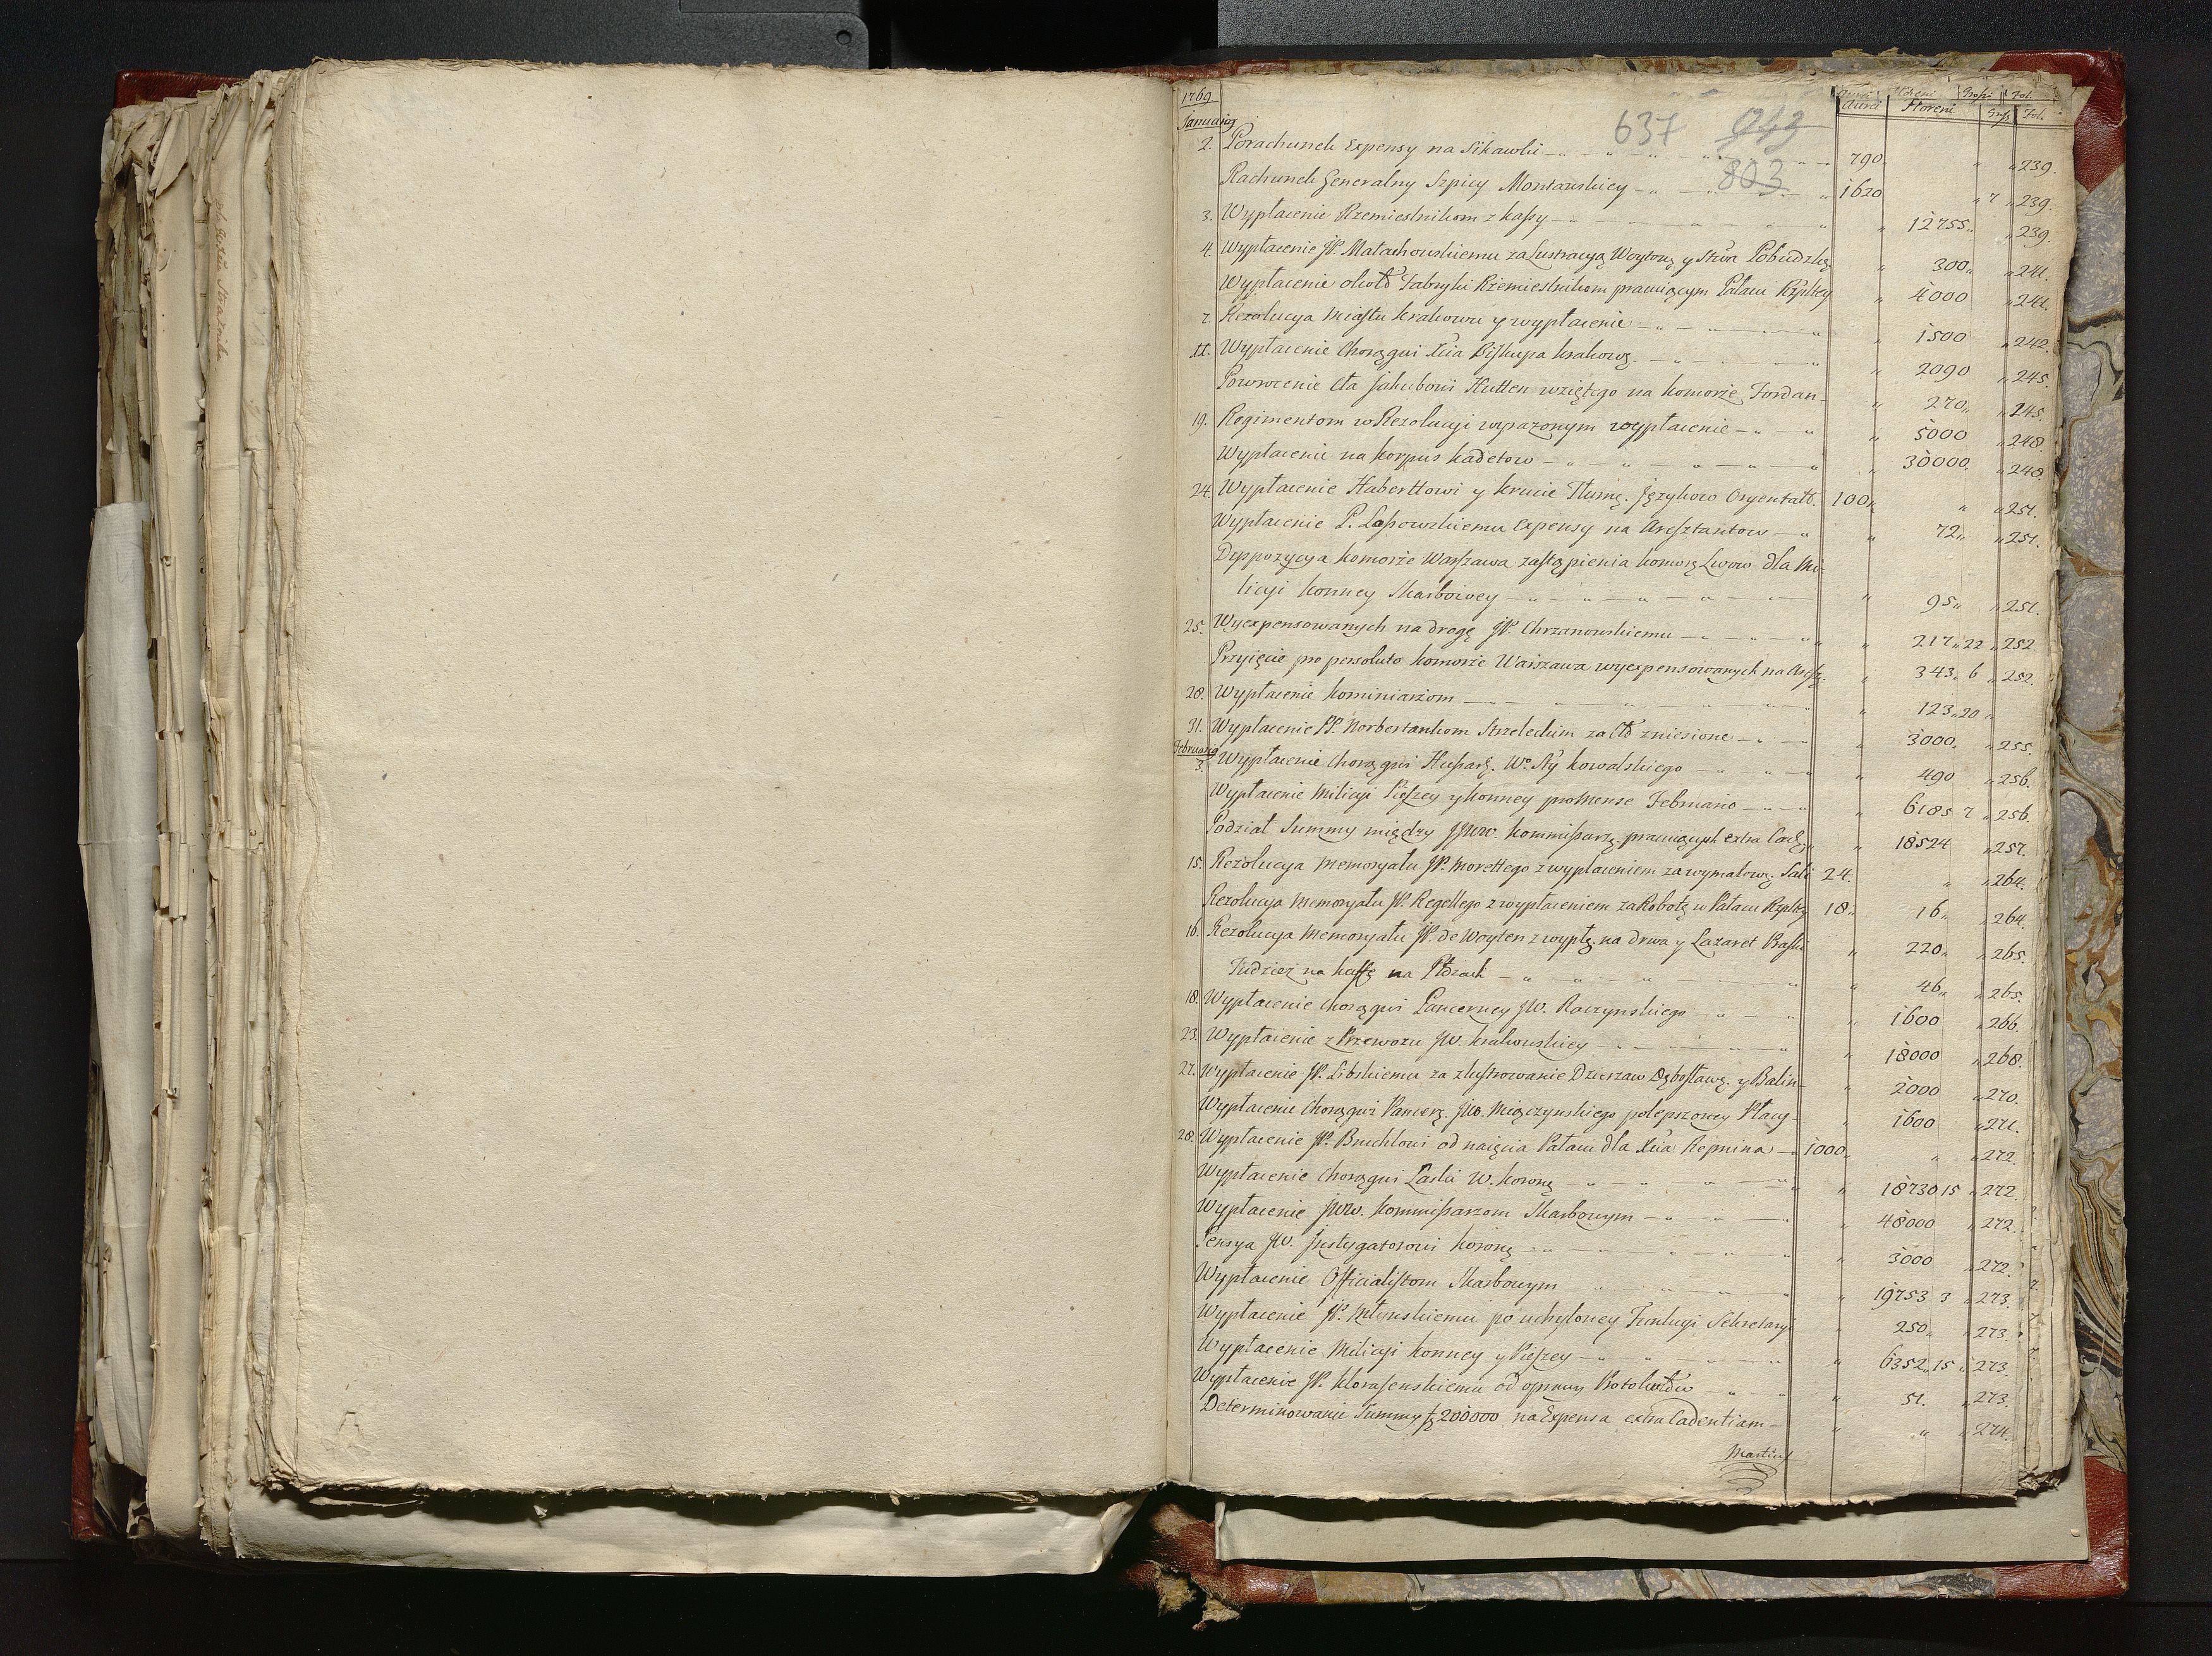 1769
Aurei Floreni Grossi Fol.
Januarij Aurei Floreni Gross Fol.
637 943
803
2. Porachunek Expensy na Sikawki 790 239.
Rachunek Generalny Szpicy Montauskiey 1620 7 239.
3. Wypłacenie Rzemieslnikom z kassy 12755 239.
4. Wypłacenie JP. Małachowskiemu za Lustracyą Woytow. y Stwa Pobudzk. 300 241.
Wypłacenie około Fabryki Rzemieslnikom pracuiącym Pałacu Rzpltey 4000 241.
7. Rezolucya Miastu Krakowu y wypłacenie 1500 242.
11. Wypłacenie Chorągwi Xcia Biskupa Krakows. 2090 245.
Powrocenie Cła Jakubowi Hutten wziętego na komorze Fordan- 270 245.
19. Regimentom w Rezolucyi wyrażonym wypłacenie 5000 248.
Wypłacenie na korpus kadetow 30000 248.
24. Wypłacenie Huberttowi y krucie Tłumą. Językow Oryentalł. 100 251.
Wypłacenie P. Lassowskiemu Expensy na Aresztantow 72 251.
Deppozycya komorze Warszawa zastąpienia komorą Lwow dla Mi-
licyi konney Skarbowey 95 251.
25. Wyexpensowanych na drogę JP. Chrzanowskiemu 217 22 252.
Przyięcie pro persoluto komorze Warszawa wyexpensowanych na Areszt. 343 6 252.
28. Wypłacenie kominiarzom 123 20
31. Wypłacenie PP. Norbertankom Strzeleckim za Cło zniesione 3000 255.
Februarij
3. Wypłacenie Chorągwi Hussars. Wo. Sty kowalskiego 490 256.
Wypłacenie Milicyi Pieszey y konney pro Mense Februario 6185 7 256.
Podział Summy między JJWW. kommissarzą. pracuiących extra Cad. 18524 257.
15. Rezolucya Memoryału JP. Morettego z wypłaceniem za wymalow. Sali 24. 264.
Rezolucya Memoryału JP. Regellego z wypłaceniem za Robotę w Pałacu Rzpltey 18 16 264.
16. Rezolucya Memoryału JP. de Woyten z wypł. na drwa y Lazaret 220 265.
Tudzież na kassę na 46 265.
18. Wypłacenie Chorągwi Pancerney JW. Raczynskiego 1600 266.
23. Wypłacenie z Przewozu JW. krakowskiey 18000 268.
27. Wypłacenie JP. Libskiemu za zlustrowanie Dzierzaw y Balin- 2000 270.
Wypłacenie Chorągwi Pancer. JW. Miączynskiego polepszoney Płacy- 1600 271.
28. Wypłacenie JP. Bruchlowi od naięcia Pałacu dla Xcia Repnina 1000 272.
Wypłacenie Chorągwi Laski W. koronn. 18730 15 272.
Wypłacenie JWW. kommissarzom Skarbowym 48000 272.
Pensya JW. Jnstygatorowi koronn. 3000 272.
Wypłacenie Officialistom Skarbowym 19753 3 273.
Wypłacenie JP. Mlinskiemu po uchyloney Funkcyi Sekretary 250 273.
Wypłacenie Milicyi konney y Pieszey 6352 15 273.
Wypłacenie JP. od oprawy Protokułow 51. 273.
Determinowanie Summy fl. 200000 na Expensa extra Cadentiam 274.
Martius